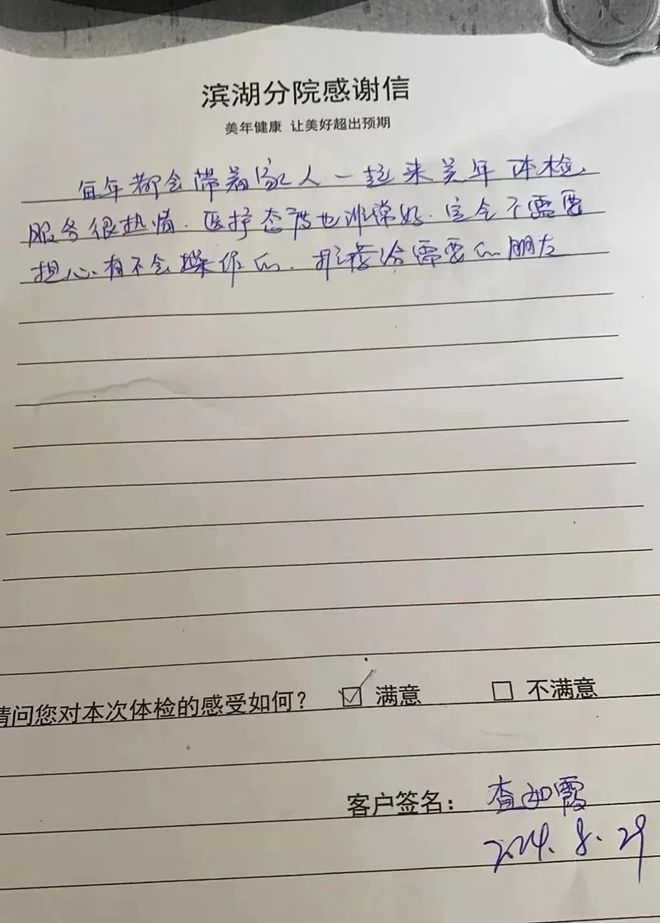 滨湖分院感谢信
美年健康 让美好超出预期
每年都会带着家人一起来美年体检,
服务很热情.医护态度也非常好.完全不需要
担心有不会操作的.推荐给需要的朋友
请问您对本次体检的感受如何? ☑ 满意 □ 不满意
客户签名: 查如霞
2024.8.29